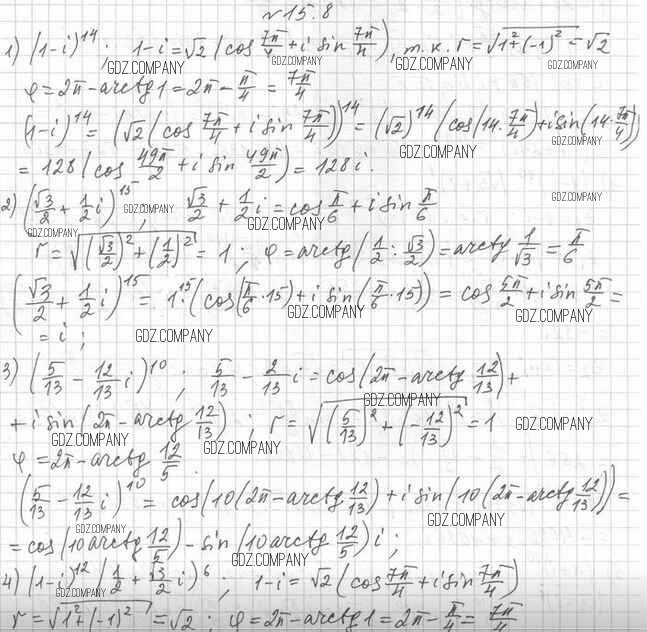 № 15.8
1) (1-i)^14; 1-i = √2 (cos 7π/4 + i sin 7π/4), т.к. r = √(1²+(-1)²) = √2
GDZ.COMPANY GDZ.COMPANY GDZ.COMPANY
φ = 2π - arctg 1 = 2π - π/4 = 7π/4
(1-i)^14 = (√2 (cos 7π/4 + i sin 7π/4))^14 = (√2)^14 (cos(14·7π/4) + i sin(14·7π/4))
GDZ.COMPANY GDZ.COMPANY
= 128 (cos 49π/2 + i sin 49π/2) = 128 i.
2) (√3/2 + 1/2 i)^15; √3/2 + 1/2 i = cos π/6 + i sin π/6
GDZ.COMPANY GDZ.COMPANY GDZ.COMPANY GDZ.COMPANY
r = √((√3/2)² + (1/2)²) = 1; φ = arctg(1/2 : √3/2) = arctg 1/√3 = π/6
(√3/2 + 1/2 i)^15 = 1^15 · (cos(π/6 · 15) + i sin(π/6 · 15)) = cos 5π/2 + i sin 5π/2 =
GDZ.COMPANY GDZ.COMPANY
= i;
GDZ.COMPANY
3) (5/13 - 12/13 i)^10; 5/13 - 2/13 i = cos(2π - arctg 12/13) +
GDZ.COMPANY
+ i sin(2π - arctg 12/13); r = √((5/13)² + (-12/13)²) = 1
GDZ.COMPANY GDZ.COMPANY GDZ.COMPANY
φ = 2π - arctg 12/5
(5/13 - 12/13 i)^10 = cos(10(2π - arctg 12/13) + i sin(10(2π - arctg 12/13)) =
GDZ.COMPANY GDZ.COMPANY
= cos(10 arctg 12/5) - sin(10 arctg 12/5) i;
GDZ.COMPANY
4) (1-i)^12 (1/2 + √3/2 i)^6; 1-i = √2 (cos 7π/4 + i sin 7π/4)
GDZ.COMPANY
r = √(1²+(-1)²) = √2; φ = 2π - arctg 1 = 2π - π/4 = 7π/4